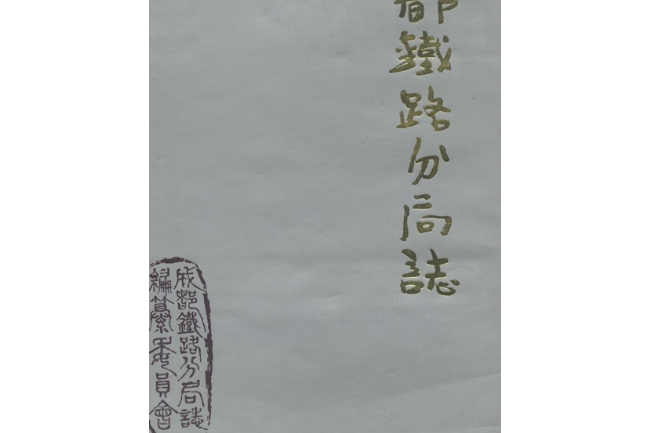 都鐵路分局誌
成都鐵路分局誌
編纂委員會